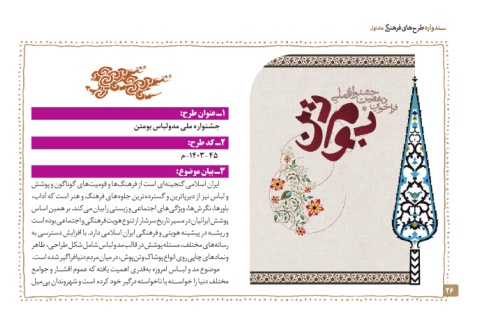 سندواره طرح‌های فرهنگی جلد اول
فراخوان
دهمین
جشنواره ملی
بوم تن
۱ــ عنوان طرح:
جشنواره ملی مدولباس بومتن
۲ــ کد طرح:
۴۵-۱۴۰۳-م
۳ــ بیان موضوع:
ایران اسلامی گنجینه‌ای است از فرهنگ‌ها و قومیت‌های گوناگون و پوشش
و لباس نیز از دیرپاترین و گسترده‌ترین جلوه‌های فرهنگ و هنر است که آداب،
باورها، نگرش‌ها، ویژگی‌های اجتماعی و زیستی را بیان می‌کند. بر همین اساس
پوشش ایرانیان در مسیر تاریخ سرشار از تنوع هویت فرهنگی و اجتماعی بوده است
و ریشه در پیشینه هویتی و فرهنگی ایران اسلامی دارد. با افزایش دسترسی به
رسانه‌های مختلف، مسئله پوشش در قالب مدولباس شامل شکل طراحی، ظاهر
و نمادهای چاپی روی انواع پوشاک و تن‌پوش، در میان مردم دنیا فراگیر شده است.
موضوع مد و لباس امروزه به‌قدری اهمیت یافته که عموم اقشار و جوامع
مختلف دنیا را خواسته یا ناخواسته درگیر خود کرده است و شهروندان بی‌میل
۲۶